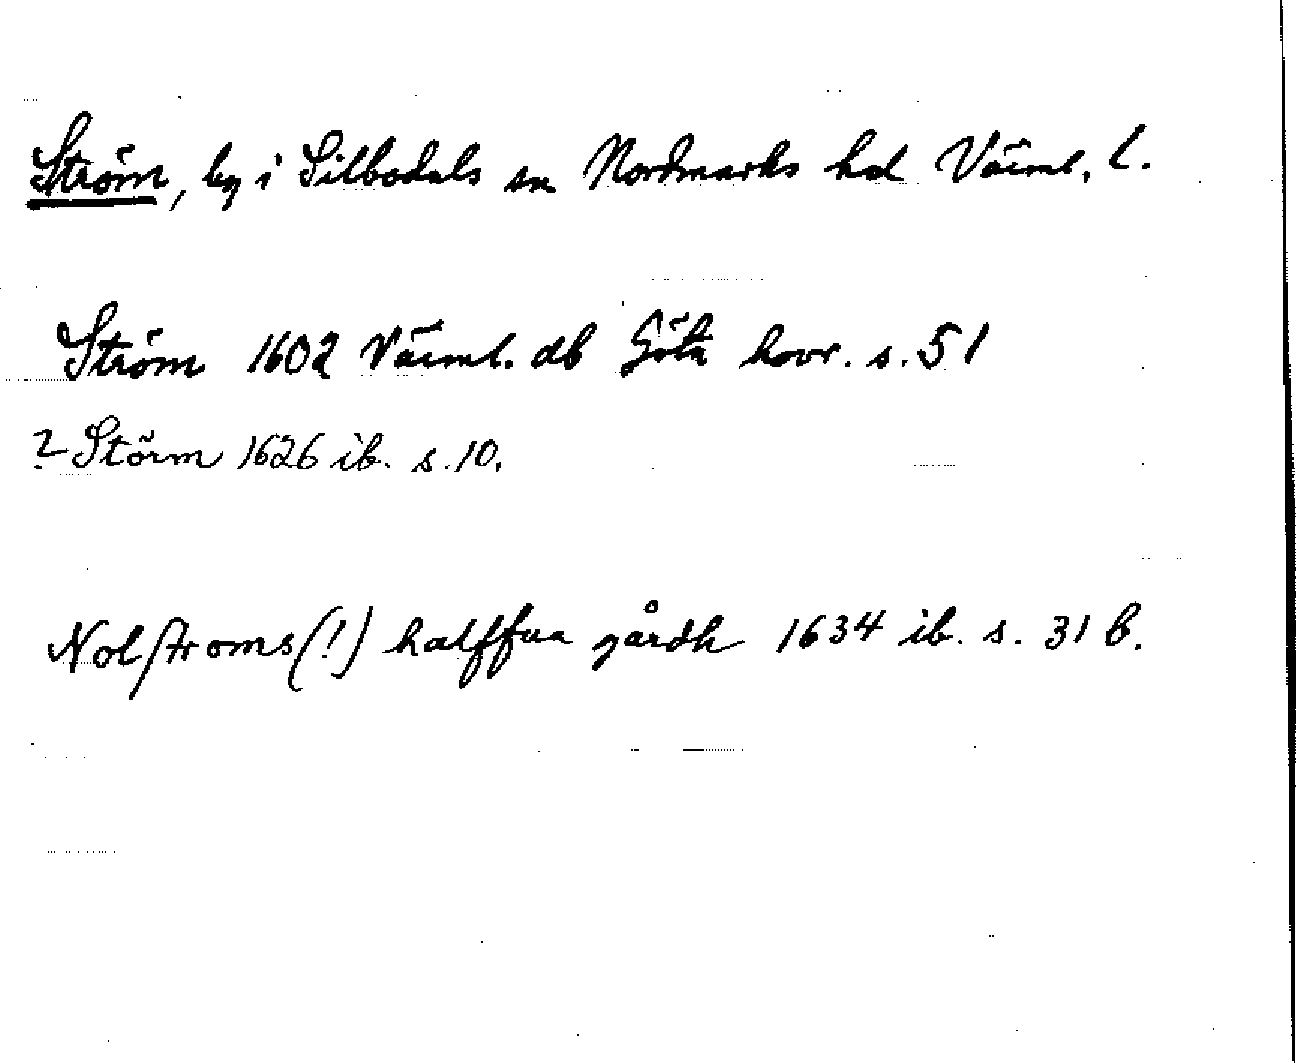 Ström, by i Silbodals sn Nordmarks hd Värml. l.
Ström 1602 Värml. db Göta hovr. s. 51
? Störm 1626 ib. s. 10.
Nolstroms(!) halffua gårdh 1634 ib. s. 31 b.